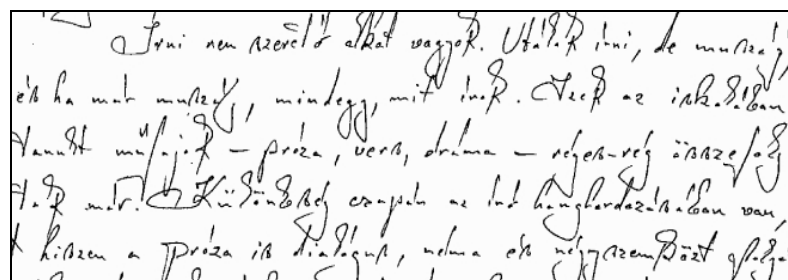 Írni nem szerető alkat vagyok. Utálok írni, de muszáj,
és ha már muszáj, mindegy, mit írok. Ezek az iskolában
tanult műfajok – próza, vers, dráma – réges-rég összefoly
tak már. Különbség csupán az író hanghordozásában van,
hiszen a próza is dialógus, néma és négyszemközt